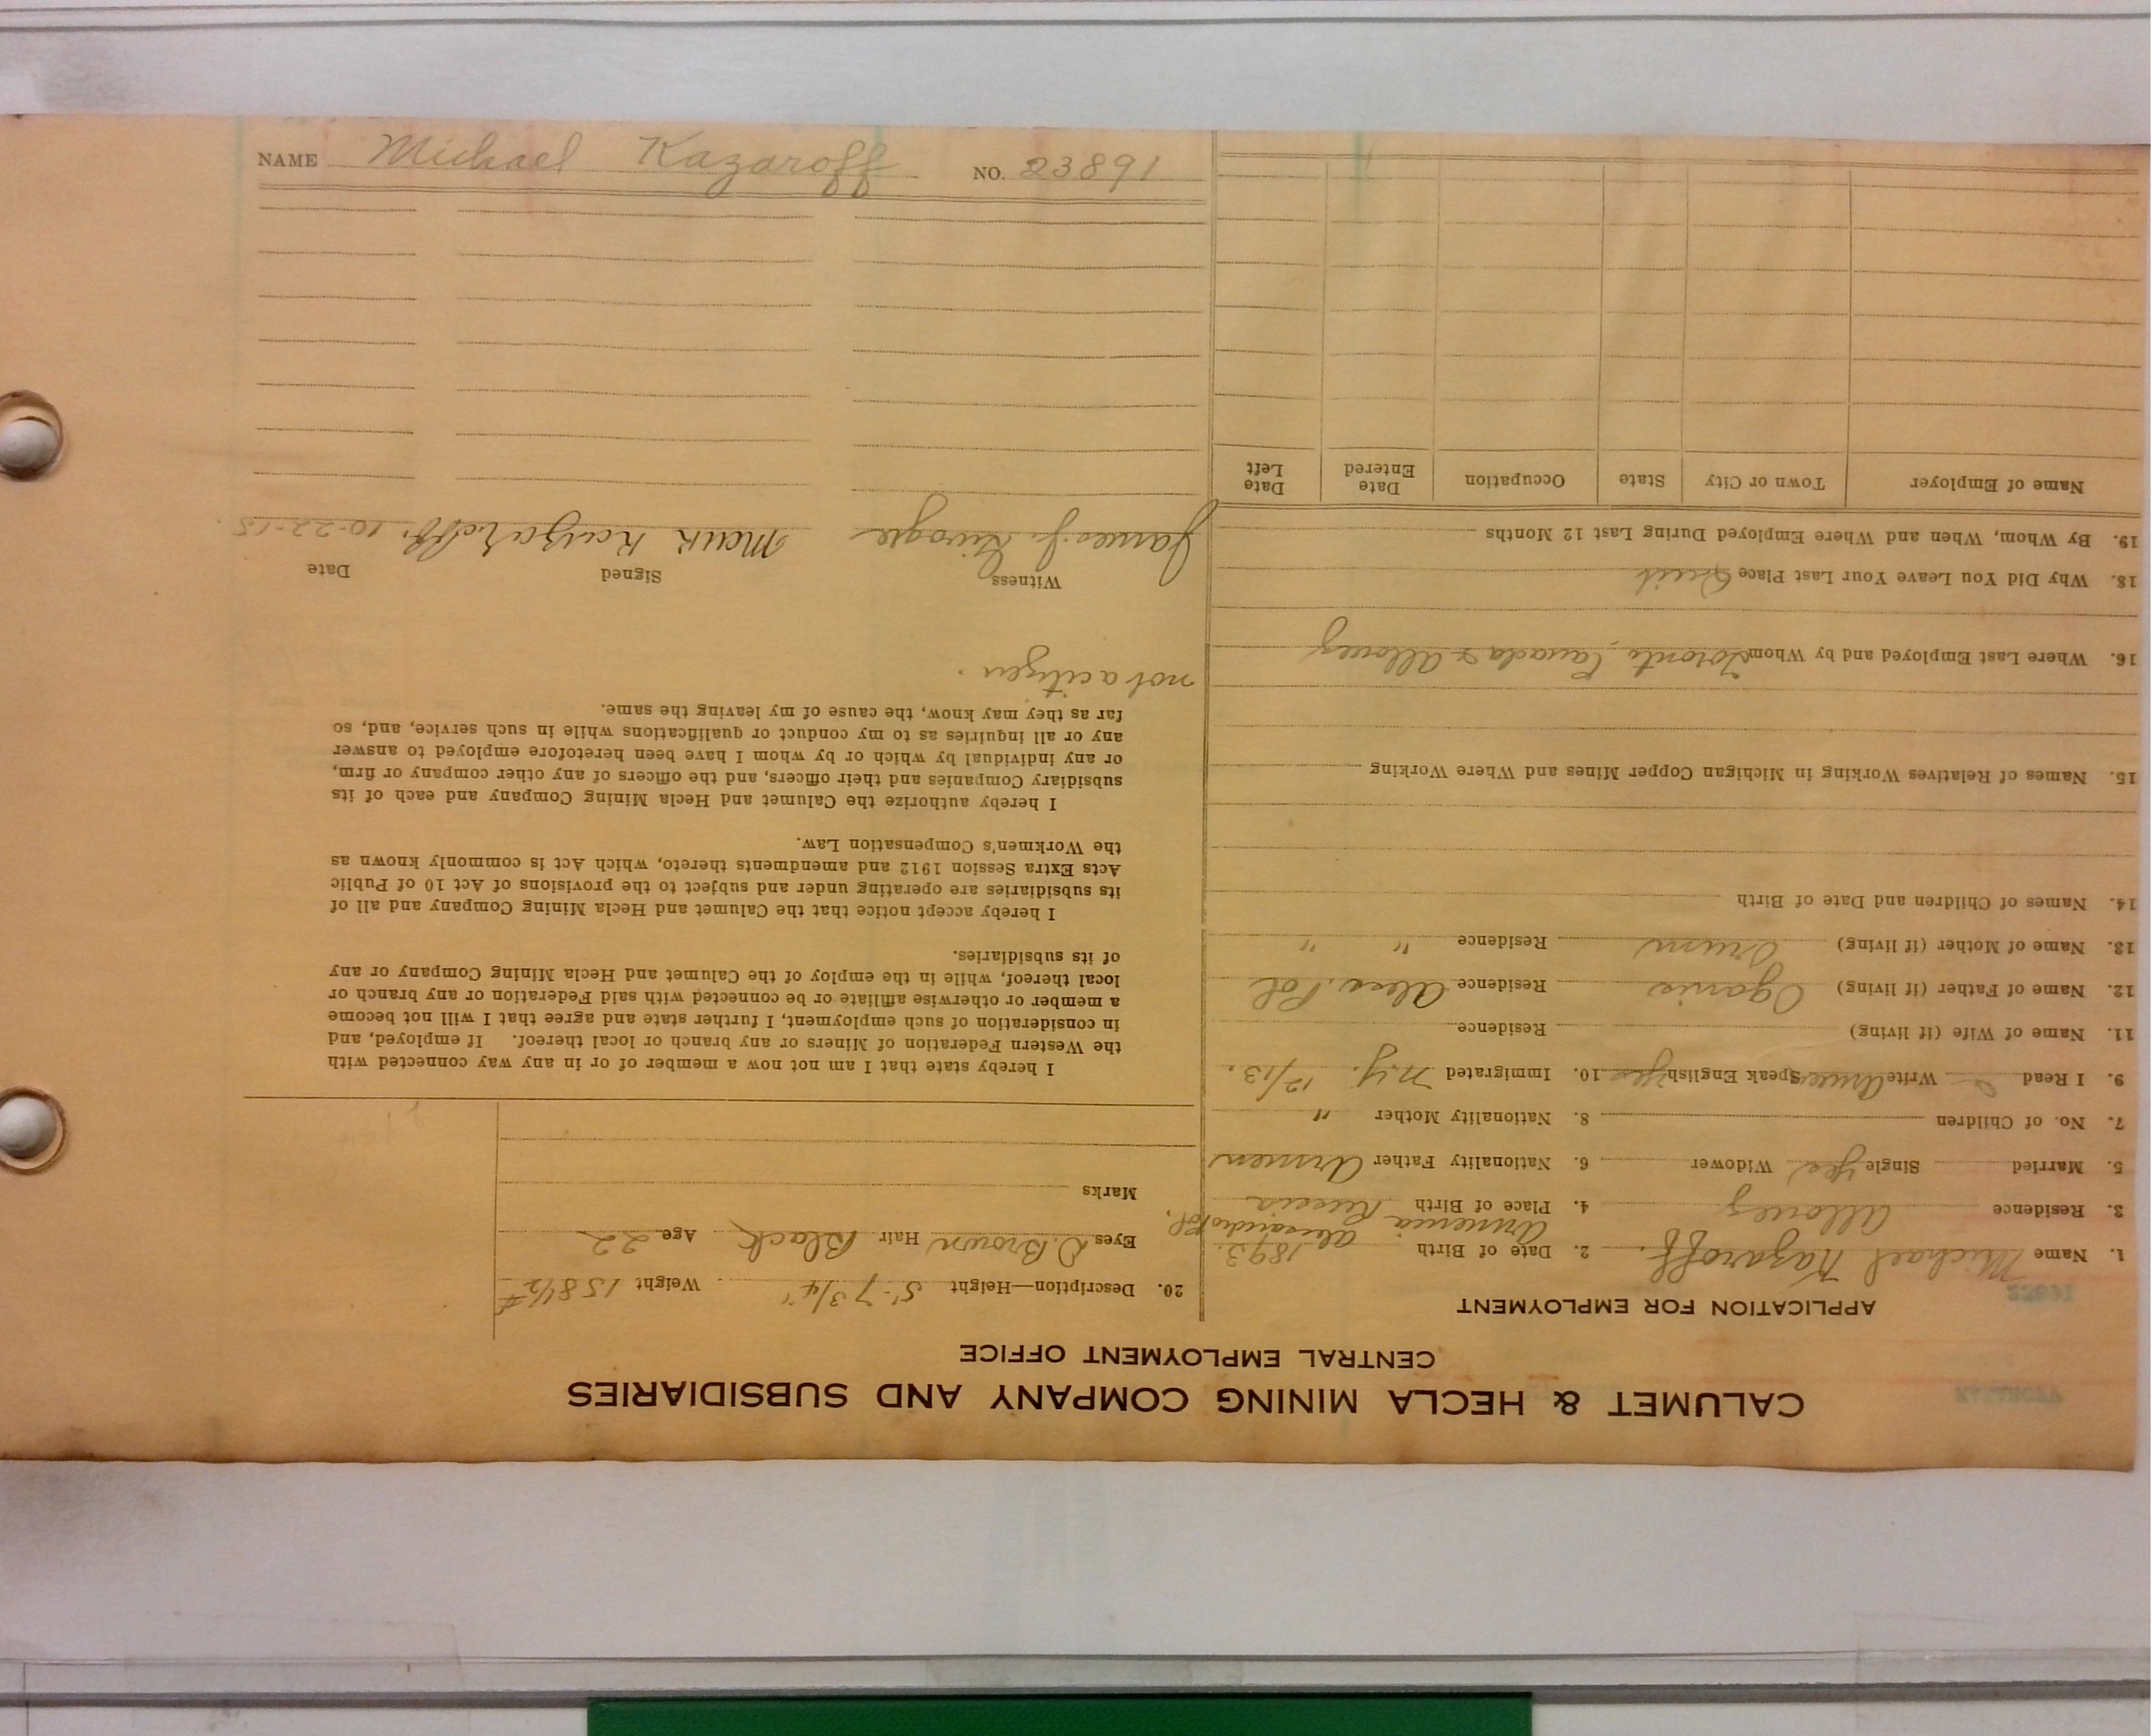 NAME Michael Kazaroff NO. 23891
CALUMET & HECLA MINING COMPANY AND SUBSIDIARIES
CENTRAL EMPLOYMENT OFFICE
APPLICATION FOR EMPLOYMENT
1. Name Michael Kazaroff. 2. Date of Birth 1893.
Armenia Alexandropol.
3. Residence Allouez 4. Place of Birth Russia
5. Married Single Yes Widower 6. Nationality Father Armen
7. No. of Children 8. Nationality Mother "
9. I Read Write Armen Speak English Yes 10. Immigrated N.Y. 12/13.
11. Name of Wife (if living) Residence
12. Name of Father (if living) Oganis Residence Alex. Pol
13. Name of Mother (if living) Residence " "
14. Names of Children and Date of Birth
15. Names of Relatives Working in Michigan Copper Mines and Where Working
16. Where Last Employed and by Whom Toronto, Canada & Allouez
18. Why Did You Leave Your Last Place Quit
19. By Whom, When and Where Employed During Last 12 Months
Name of Employer Town or City State Occupation Date Entered Date Left
20. Description—Height 5'-7 3/4" Weight 158 1/2 #
Eyes D. Brown Hair Black Age 22
Marks
I hereby state that I am not now a member of or in any way connected with
the Western Federation of Miners or any branch or local thereof. If employed, and
in consideration of such employment, I further state and agree that I will not become
a member or otherwise affiliate or be connected with said Federation or any branch or
local thereof, while in the employ of the Calumet and Hecla Mining Company or any
of its subsidiaries.
I hereby accept notice that the Calumet and Hecla Mining Company and all of
its subsidiaries are operating under and subject to the provisions of Act 10 of Public
Acts Extra Session 1912 and amendments thereto, which Act is commonly known as
the Workmen's Compensation Law.
I hereby authorize the Calumet and Hecla Mining Company and each of its
subsidiary Companies and their officers, and the officers of any other company or firm,
or any individual by which or by whom I have been heretofore employed to answer
any or all inquiries as to my conduct or qualifications while in such service, and, so
far as they may know, the cause of my leaving the same.
not a citizen.
Witness Signed Date
James J. 10-22-15.